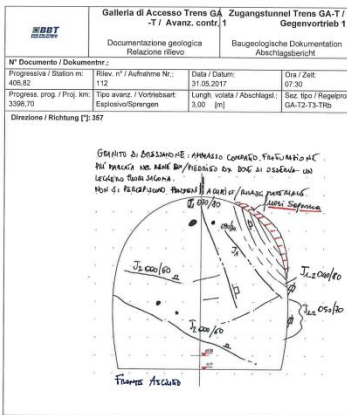 BBT
Galleria di Accesso Trens GA
-T / Avanz. contr. 1
Zugangstunnel Trens GA-T /
Gegenvortrieb 1
Documentazione geologica
Relazione rilievo
Baugeologische Dokumentation
Abschlagsbericht
N° Documento / Dokumentnr.:
Progressiva / Station m:
406,82
Rilev. n° / Aufnahme Nr.:
112
Data / Datum:
31.05.2017
Ora / Zeit:
07:30
Progress. prog. / Proj. km:
3398,70
Tipo avanz. / Vortriebsart:
Esplosivo/Sprengen
Lungh. volata / Abschlagsl.:
3,00 [m]
Sez. tipo / Regelpro
GA-T2-T3-TRb
Direzione / Richtung [°]: 357
GRANITO DI BRESSANONE: AMMASSO COMPATTO, FRATTURAZIONE
PIÙ MARCATA NEL RENE DX/PIEDRITTO DX DOVE SI OSSERVA UN
LEGGERO FUORI SAGOMA.
NON SI PERCEPISCONO
FUORI SAGOMA
J1
J2 000/60
J1.2 040/80
050/70
J2 000/60
FRONTE ASCIUTTO